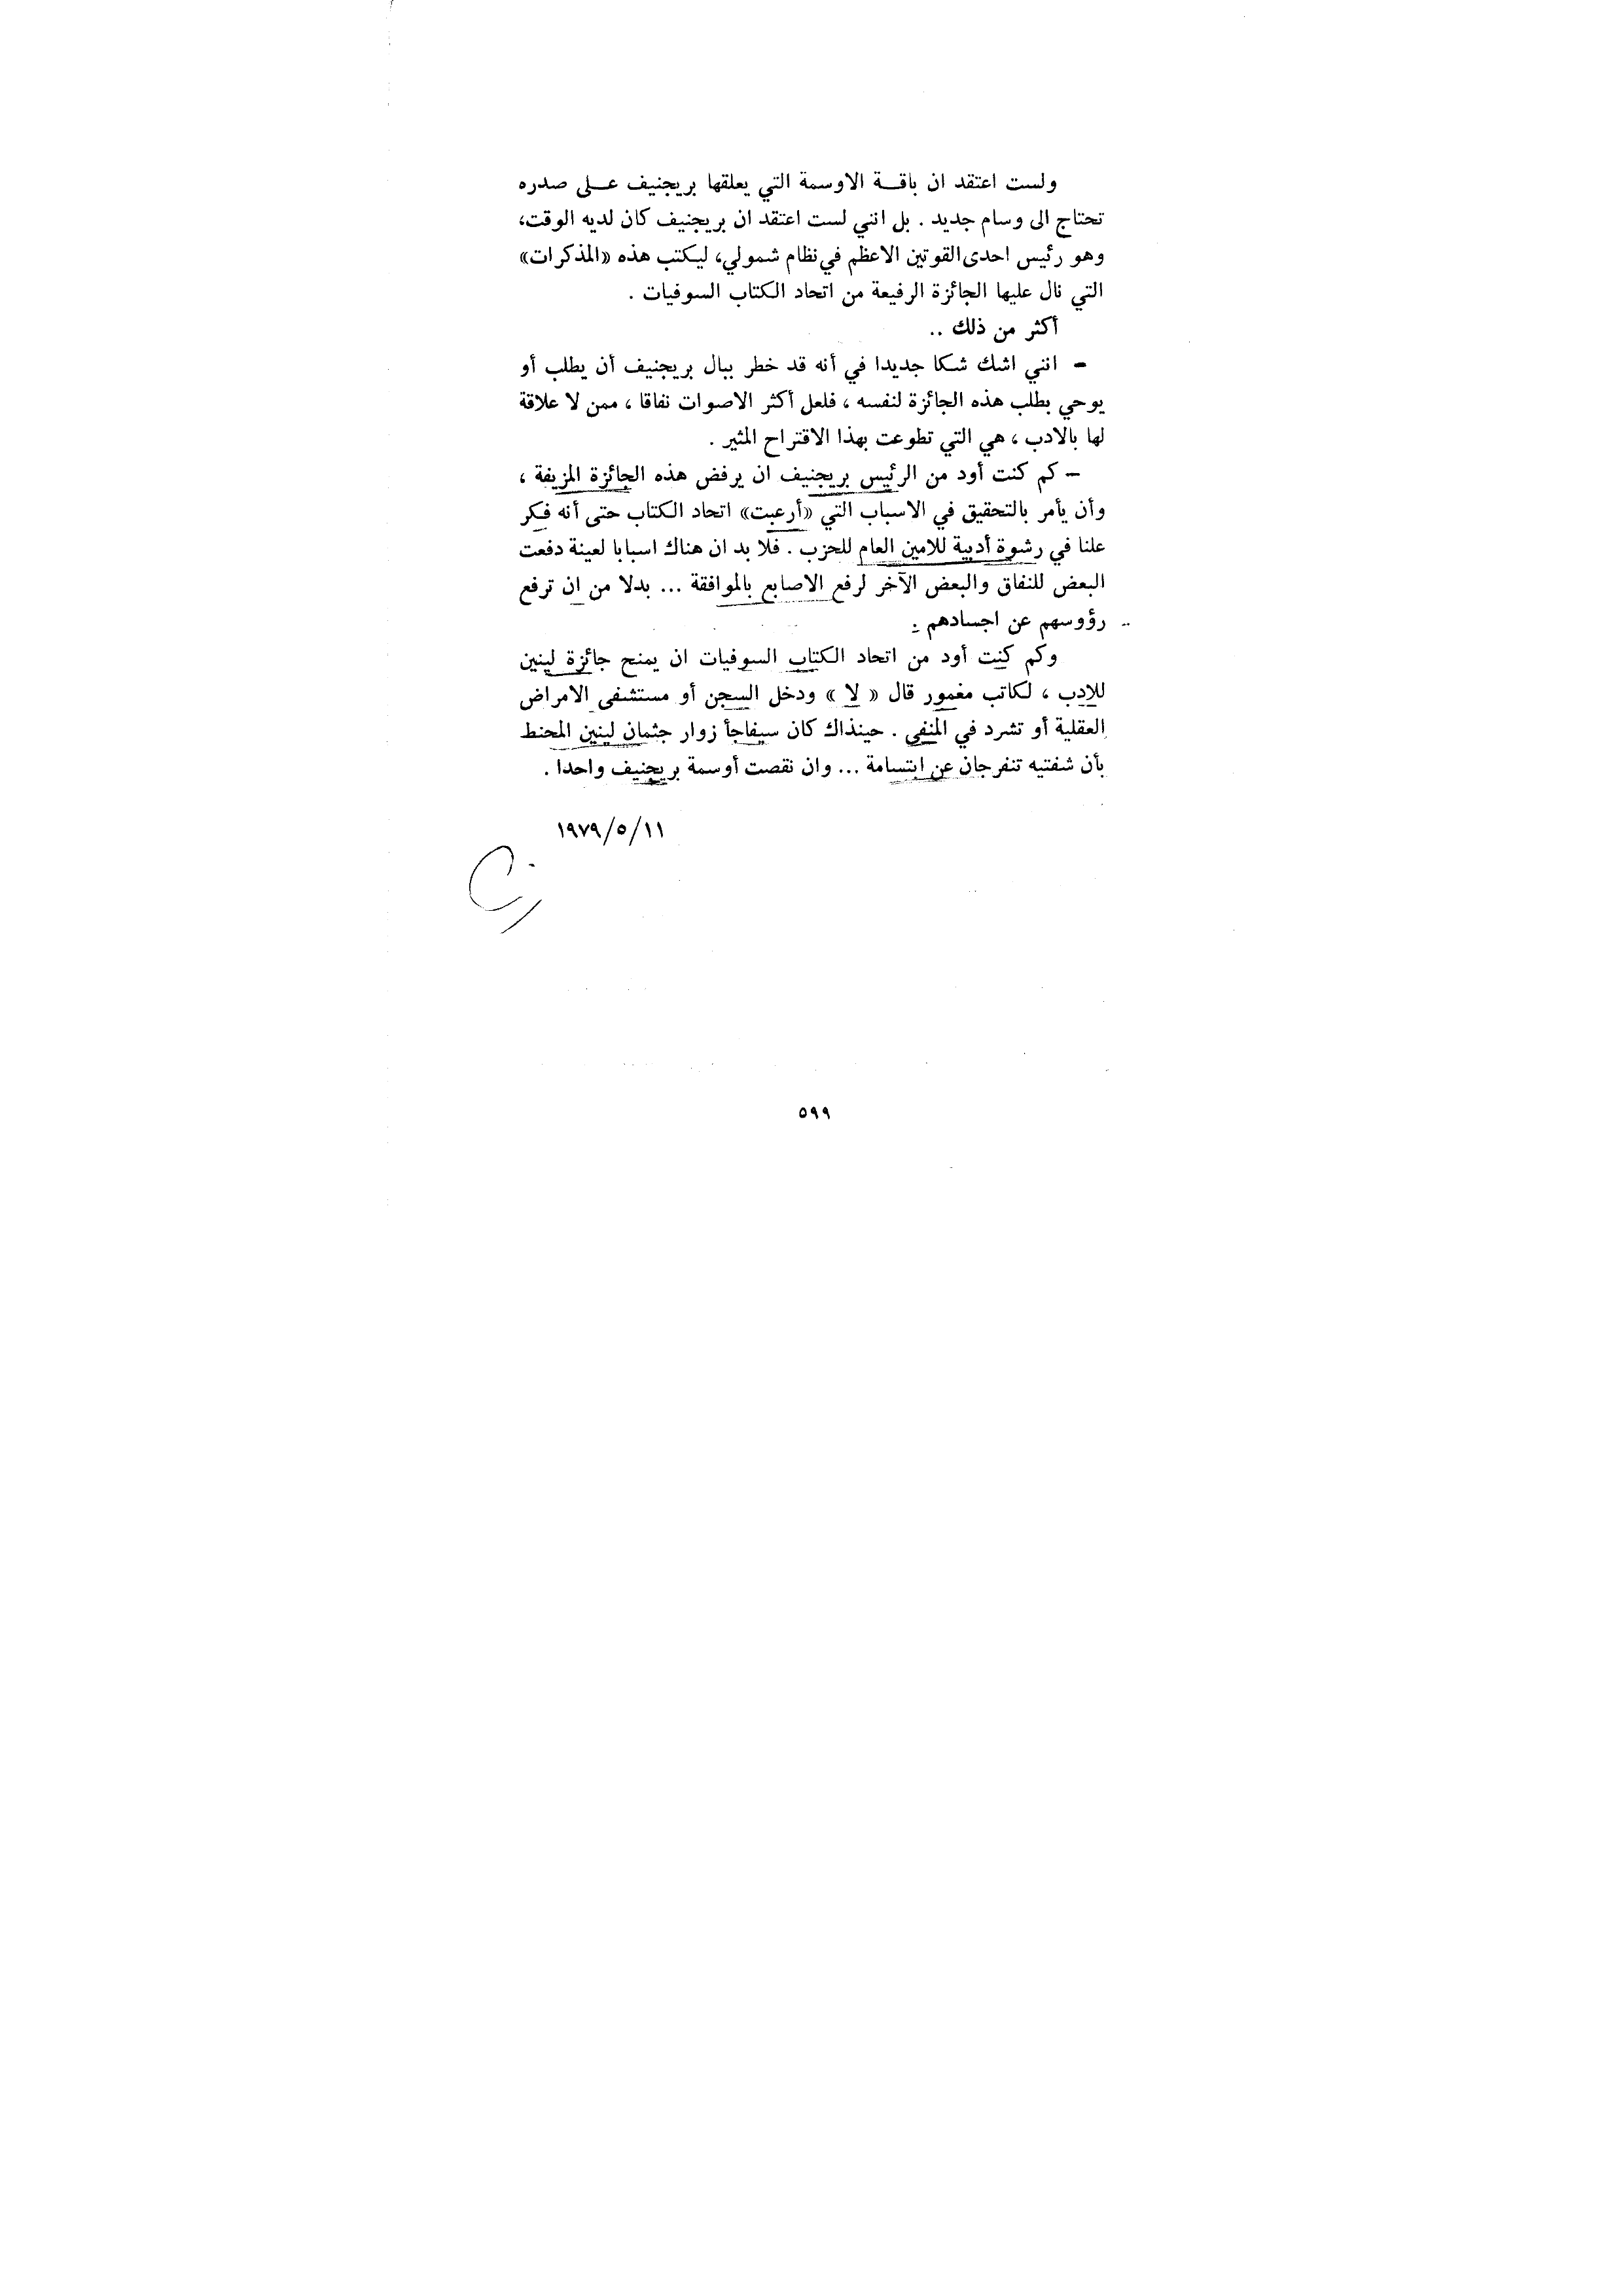 ولست اعتقد ان باقة الاوسمة التي يعلقها بريجنيف على صدره
تحتاج الى وسام جديد . بل انني لست اعتقد ان بريجنيف كان لديه الوقت،
وهو رئيس احدى القوتين الاعظم في نظام شمولي، ليكتب هذه «المذكرات»
التي نال عليها الجائزة الرفيعة من اتحاد الكتاب السوفيات .
أكثر من ذلك ..
– انني اشك شكا جديدا في أنه قد خطر ببال بريجنيف أن يطلب أو
يوحي بطلب هذه الجائزة لنفسه ، فلعل أكثر الاصوات نفاقا ، ممن لا علاقة
لها بالادب ، هي التي تطوعت بهذا الاقتراح المثير .
– كم كنت أود من الرئيس بريجنيف ان يرفض هذه الجائزة المزيفة ،
وأن يأمر بالتحقيق في الاسباب التي «أرعبت» اتحاد الكتاب حتى أنه فكر
علنا في رشوة أدبية للامين العام للحزب . فلا بد ان هناك اسبابا لعينة دفعت
البعض للنفاق والبعض الآخر لرفع الاصابع بالموافقة ... بدلا من ان ترفع
رؤوسهم عن اجسادهم .
وكم كنت أود من اتحاد الكتاب السوفيات ان يمنح جائزة لينين
للادب ، لكاتب مغمور قال « لا » ودخل السجن أو مستشفى الامراض
العقلية أو تشرد في المنفى . حينذاك كان سيفاجأ زوار جثمان لينين المحنط
بأن شفتيه تنفرجان عن ابتسامة ... وان نقصت أوسمة بريجنيف واحدا .
١٩٧٩/٥/١١
٥٩٩